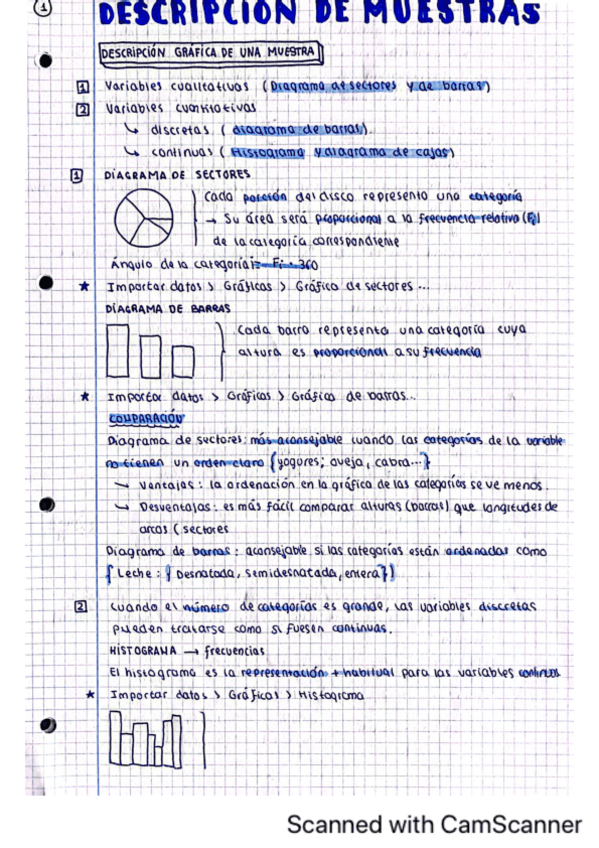 1
DESCRIPCIÓN DE MUESTRAS
DESCRIPCIÓN GRÁFICA DE UNA MUESTRA
1 Variables cualitativas (Diagrama de sectores y de barras)
2 Variables cuantitativas
↳ discretas (diagrama de barras)
↳ continuas (Histograma y diagrama de cajas)
1 DIAGRAMA DE SECTORES
Cada porción del disco representa una categoría
→ Su área será proporcional a la frecuencia relativa (Fi)
de la categoría correspondiente
Ángulo de la categoría i = Fi · 360
★ Importar datos > Gráficos > Gráfico de sectores ...
DIAGRAMA DE BARRAS
Cada barra representa una categoría cuya
altura es proporcional a su frecuencia
★ Importar datos > Gráficos > Gráfico de barras...
COMPARACIÓN
Diagrama de sectores: más aconsejable cuando las categorías de la variable
no tienen un orden claro {yogures; oveja, cabra...}
→ Ventajas: la ordenación en la gráfica de las categorías se ve menos.
↳ Desventajas: es más fácil comparar alturas (barras) que longitudes de
arcos (sectores
Diagrama de barras: aconsejable si las categorías están ordenadas como
{Leche: {Desnatada, semidesnatada, entera}}
2 Cuando el número de categorías es grande, las variables discretas
pueden tratarse como si fuesen continuas.
HISTOGRAMA → frecuencias
El histograma es la representación + habitual para las variables continuas
★ Importar datos > Gráficos > Histograma
Scanned with CamScanner